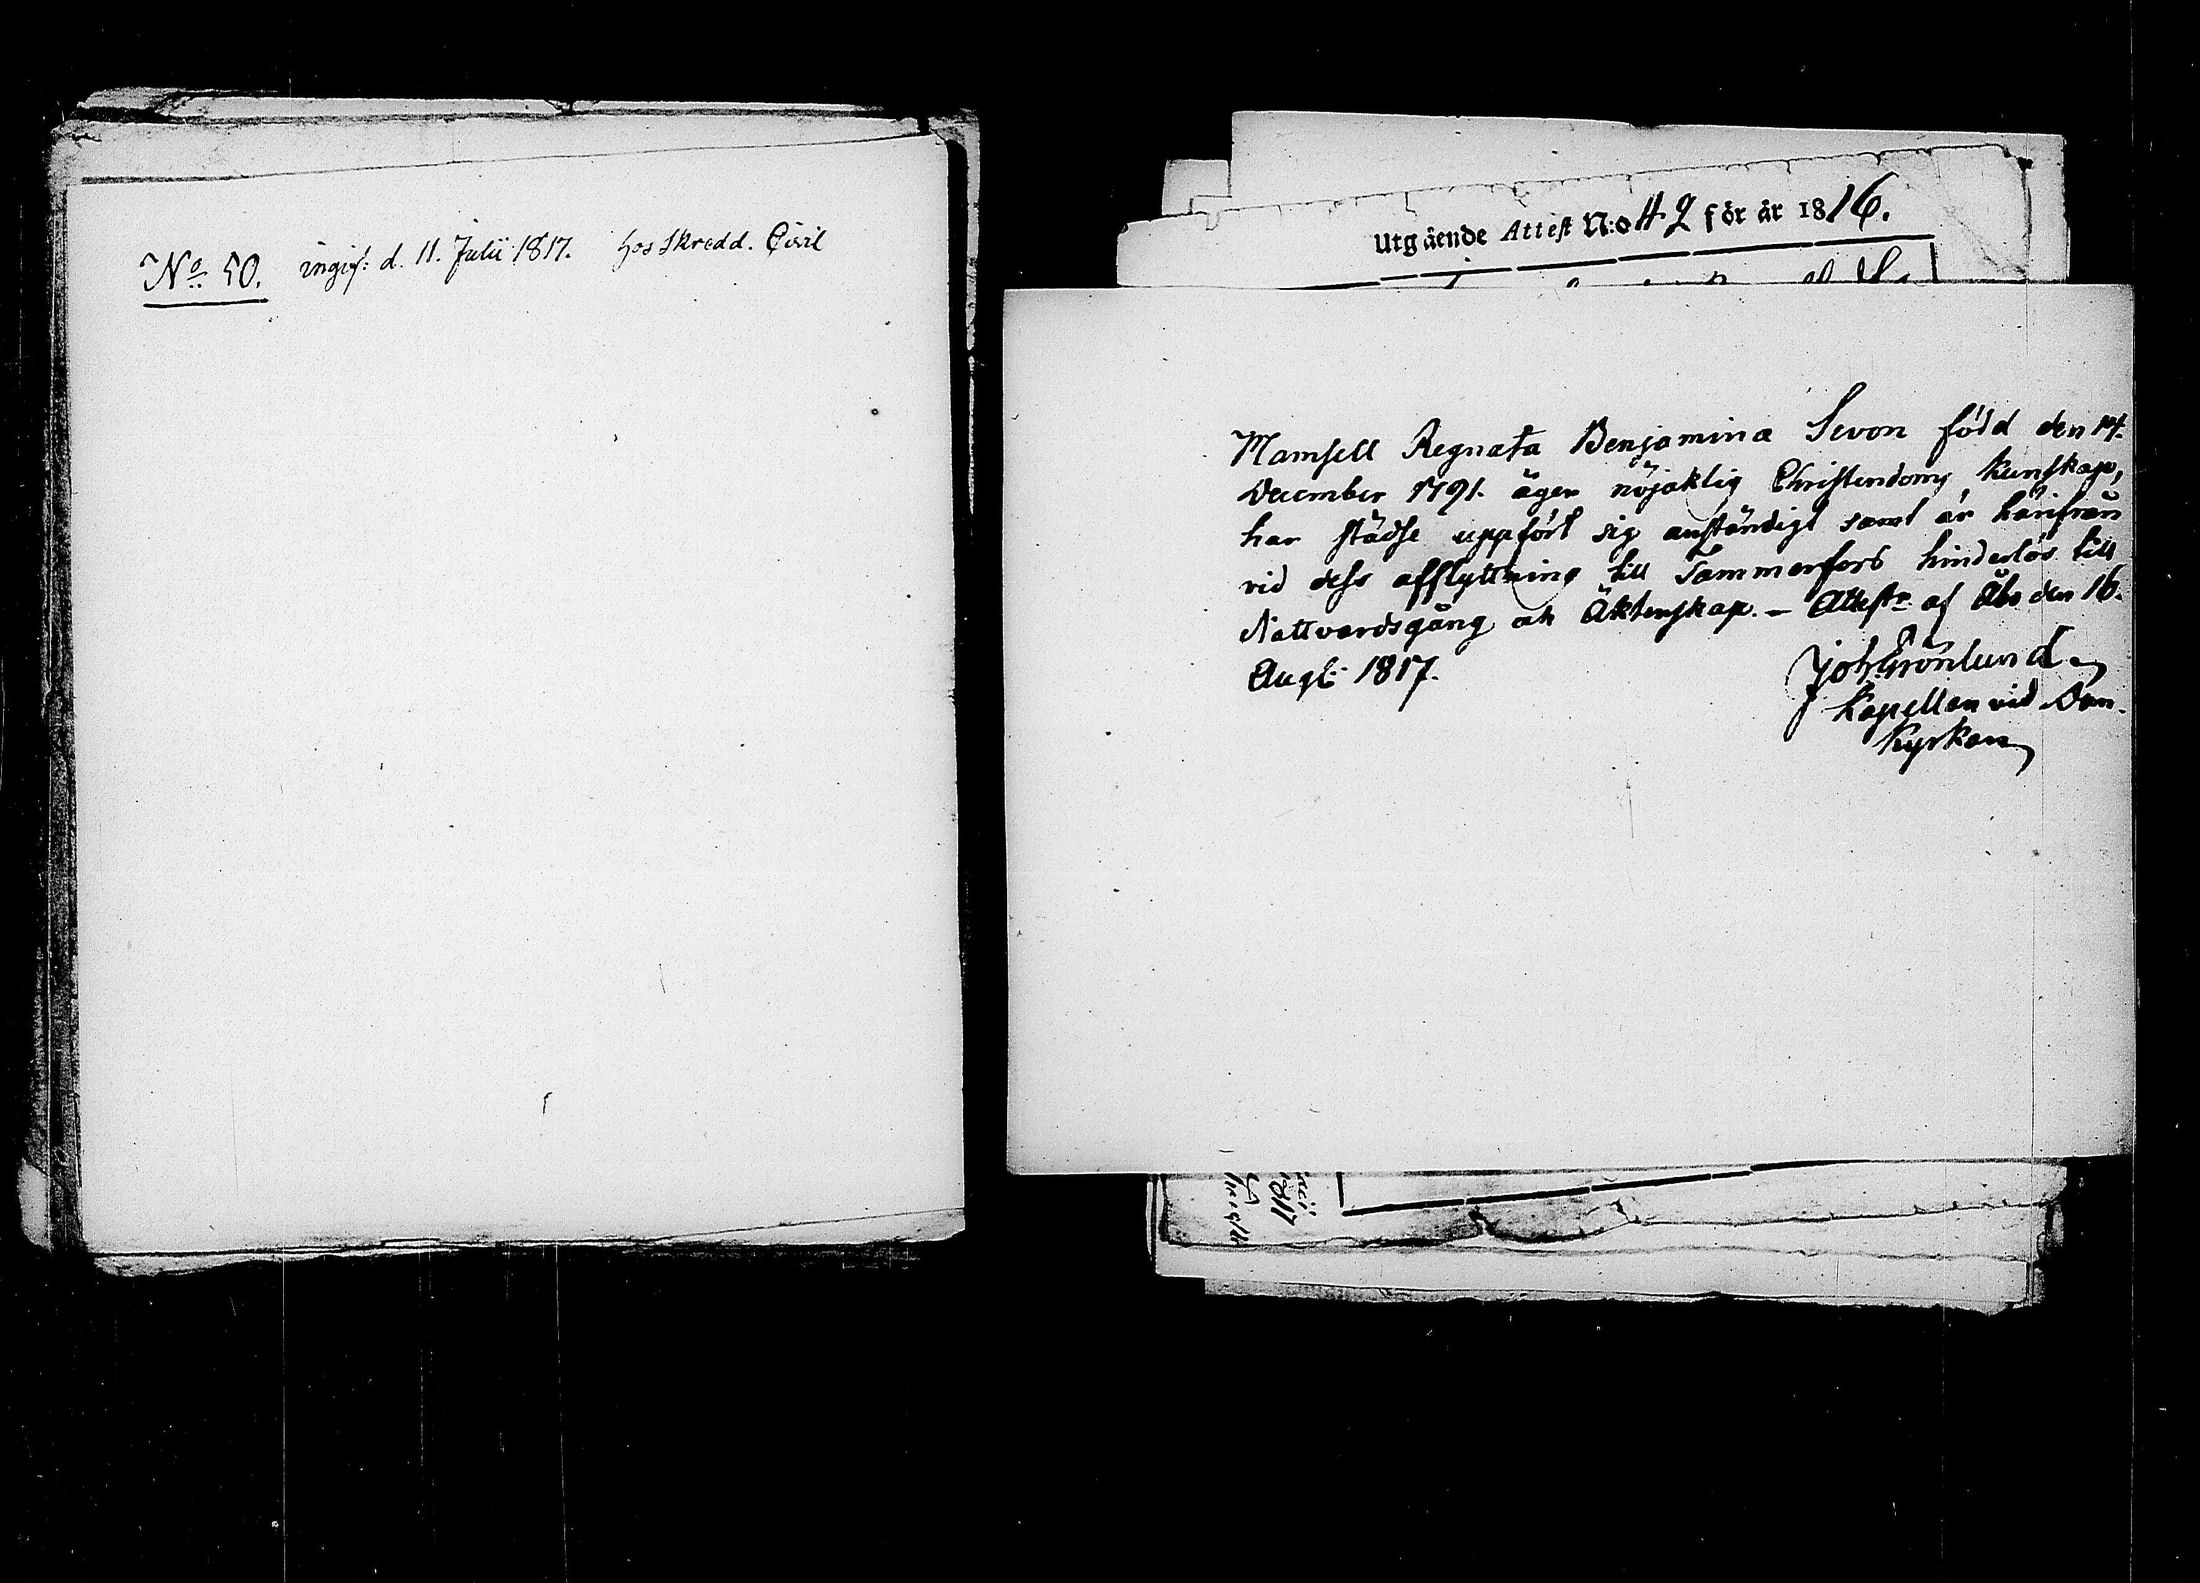 No 50. ingif: d. 11. Julii 1817. hos Skredd. Civil
Utgående Attest N:o 42 för år 1816.
Mamsell Regnata Benjamina Sevon född den 14.
December 1791. äger nöjaktig Christendoms kunskap,
har städse uppfört sig anständigt samt är härifrån
vid dess afflyttning till Tammerfors hinderlös till
Nattvardsgång och Äktenskap. – Attest:r af Åbo den 16.
Augt: 1817.
Joh: Grönlund
Kapellan vid Dom-
kyrkan
1817